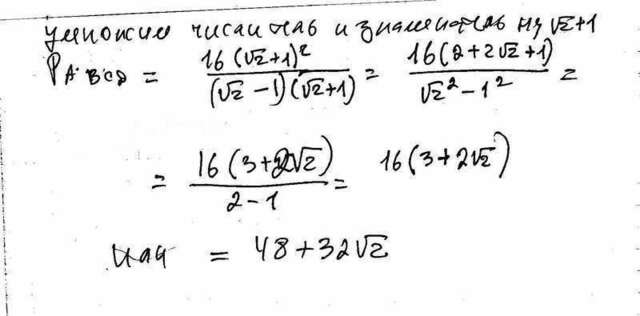 умножим числитель и знаменатель на √2+1
P ABCD = 16(√2+1)² / (√2-1)(√2+1) = 16(2+2√2+1) / √2²-1² =
= 16(3+2√2) / 2-1 = 16(3+2√2)
или = 48+32√2